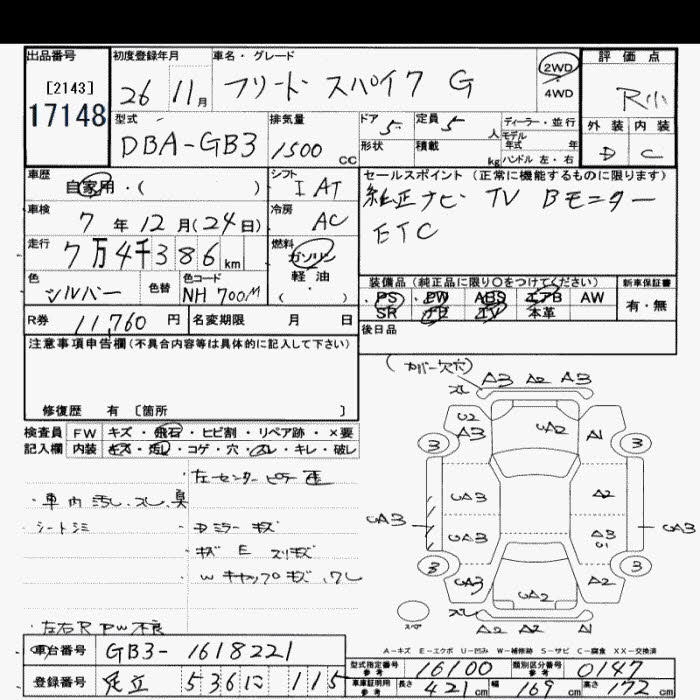 出品番号 初度登録年月 車名・グレード 2WD 4WD 評価点
[2143]
17148
26 11月 フリード スパイク G R小
型式 排気量 ドア 定員 ディーラー・並行 外装 内装
DBA-GB3 1500 cc 5 5 人 モデル 年式 年 D C
形状 積載 kg ハンドル 左・右
車歴 シフト セールスポイント(正常に機能するものに限ります)
自家用・( ) I AT 純正ナビ TV Bモニター
車検 冷房 ETC
7年 12月(24日) AC
走行 燃料
7万4千386km ガソリン
軽・油
( )
色 色替 色コード 装備品(純正品に限り○をつけてください) 新車保証書
シルバー NH700M PS・PW・ABS・エアB・AW 有・無
SR ナビ TV 本革
R券 11,760円 名変期限 月 日 後日品
注意事項申告欄(不具合内容等は具体的に記入して下さい)
修復歴 有 〔箇所 〕
(カバー欠穴)
検査員 FW キズ・飛石・ヒビ割・リペア跡・×要
記入欄 内装 キズ・汚レ・コゲ・穴・スレ・キレ・破レ
左センターピラー
・車内汚レ、スレ、臭
・シートシミ
・Dミラーキズ
・キズ E スリキズ
・左右R PW不良
スレ A3 A2 A3
U2 A3 UA2 A1
3 3
UA3 A2
UA3 UA3 A3 U1 UA3
3 UA3 UA2 A2 3
スペア スレ A2 A2 A1
A-キズ E-エクボ U-凹み W-補修跡 S-サビ C-腐食 XX-交換済
車台番号 GB3-1618221
型式指定番号 参考 16100 類別区分番号 参考 0147
登録番号 足立 536 に 115
車庫証明用 参考 長さ 421cm 幅 169cm 高さ 172cm